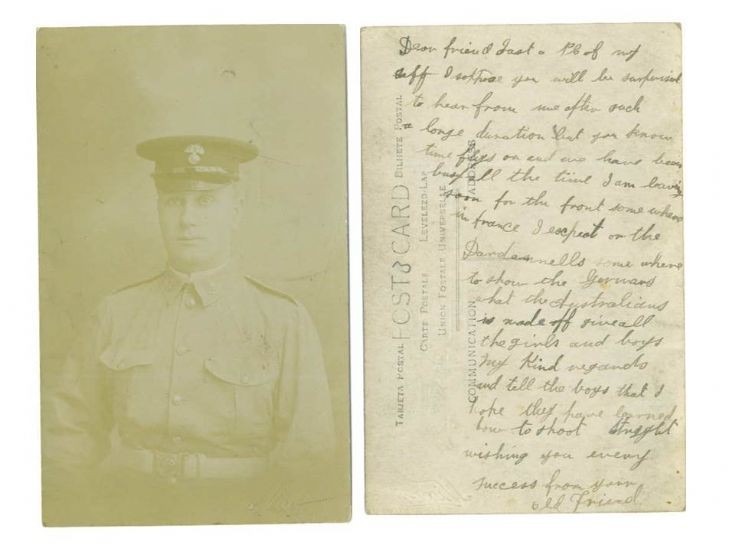 Dear friend Just a PC of my
self I soppose you will be surprised
to hear from me after such
a longe duration but you know
time flys on and we have been
busy all the time I am leaving
soon for the front some where
in france I expect or the
Dardannells some where
to show the Germans
what the Australians
is made off give all
the girls and boys
my Kind regards
and tell the boys that I
ope they have learned
how to shoot
wishing you every
success from your
old Friend
TARJETA POSTAL POST CARD BILHETE POSTAL
CARTE POSTALE LEVELEZO-LAP
UNION POSTALE UNIVERSELLE
COMMUNICATION ADDRESS